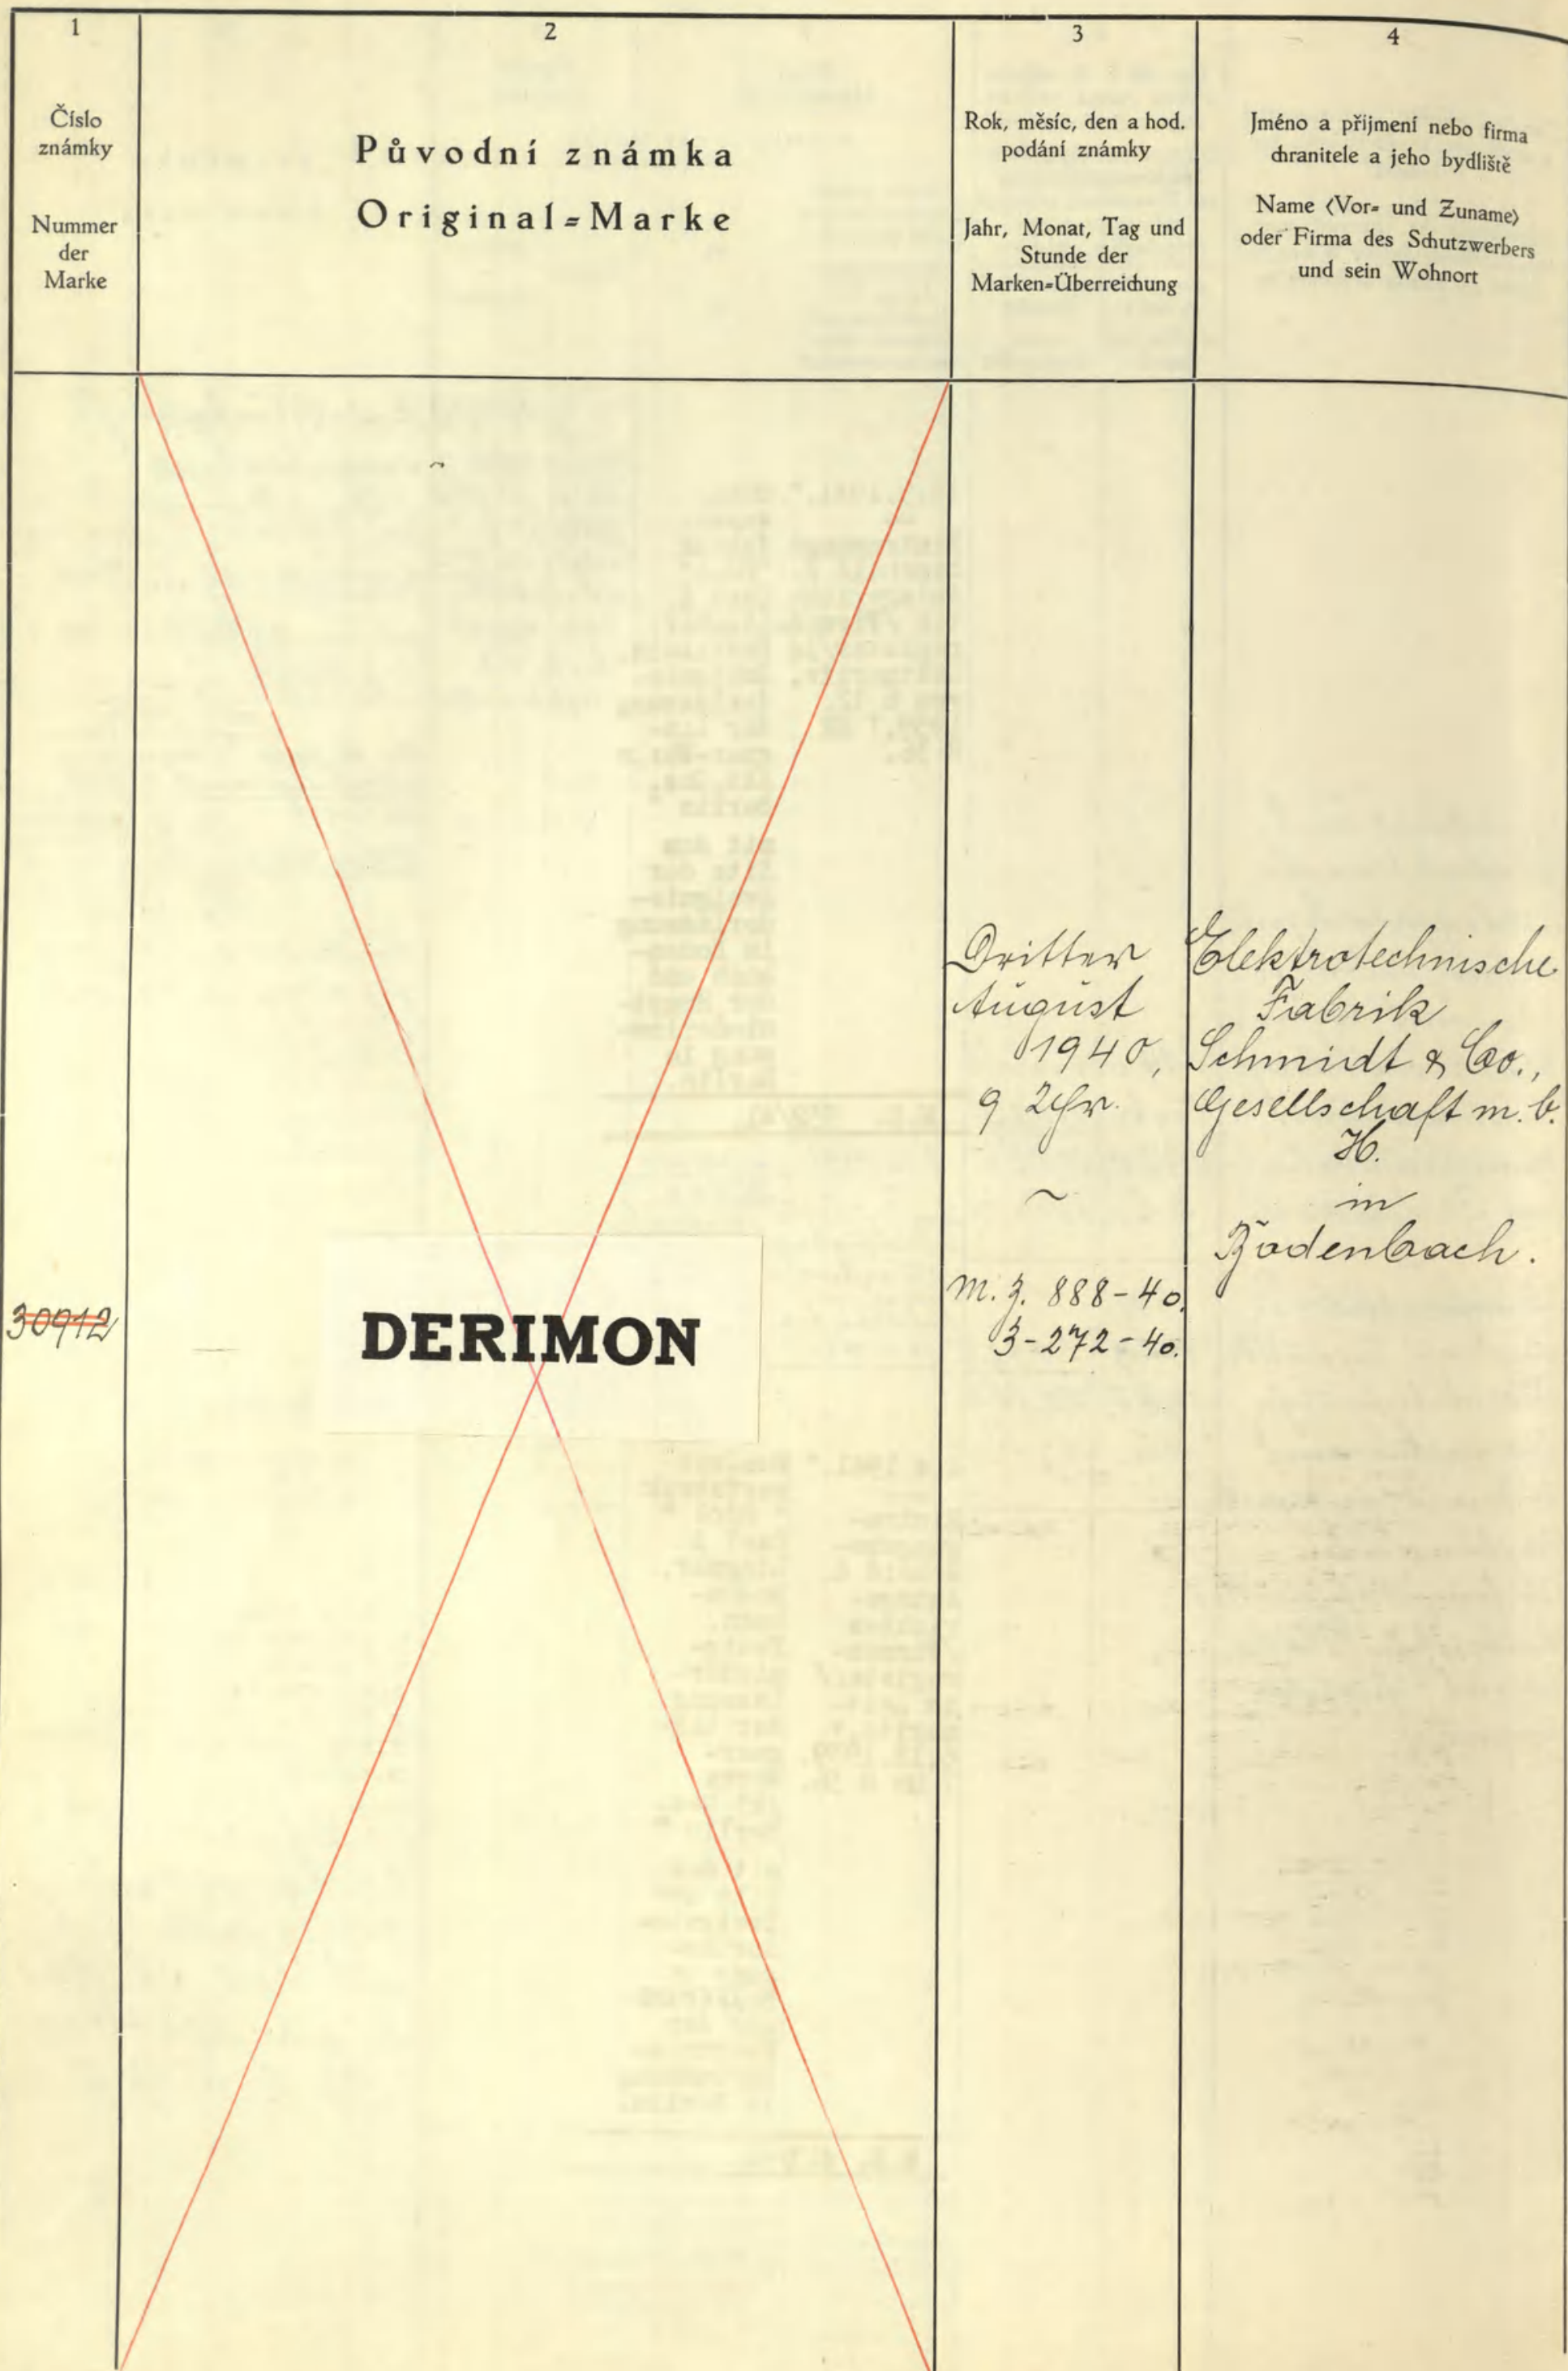 1
Číslo
známky
Nummer
der
Marke
2
Původní známka
Original=Marke
3
Rok, měsíc, den a hod.
podání známky
Jahr, Monat, Tag und
Stunde der
Marken=Überreichung
4
Jméno a přijmení nebo firma
chranitele a jeho bydliště
Name (Vor= und Zuname)
oder Firma des Schutzwerbers
und sein Wohnort
30912
DERIMON
Dritter
August
1940,
9 Uhr.
~
M. Z. 888-40.
3-272-40.
Elektrotechnische
Fabrik
Schmidt & Co.,
Gesellschaft m. b.
H.
in
Bodenbach.